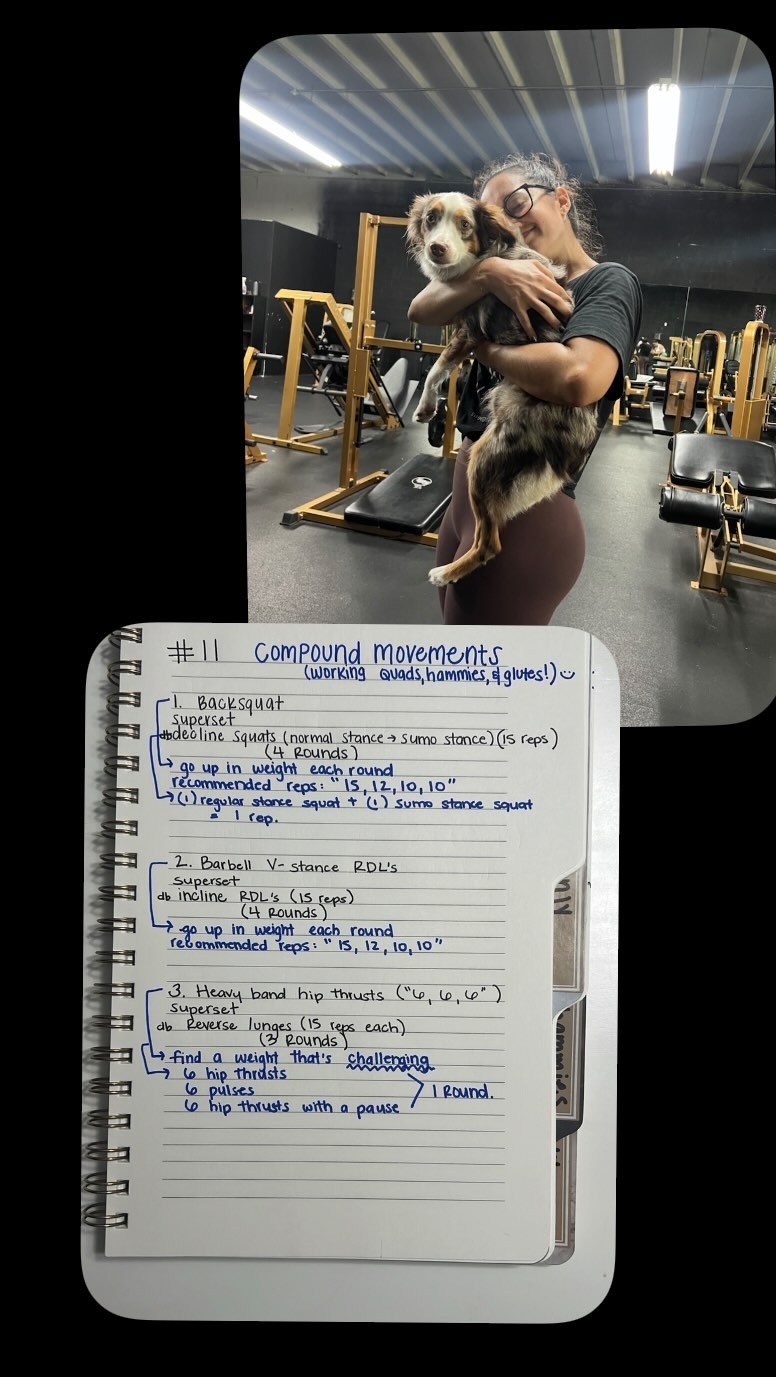 #11 Compound Movements
(Working Quads, hammies, & glutes!)
1. Backsquat
superset
db decline squats (normal stance → sumo stance) (15 reps)
(4 Rounds)
go up in weight each round
recommended reps: "15, 12, 10, 10"
(1) regular stance squat + (1) sumo stance squat
= 1 rep.
2. Barbell V-stance RDL's
superset
db incline RDL's (15 reps)
(4 Rounds)
go up in weight each round
recommended reps: "15, 12, 10, 10"
3. Heavy band hip thrusts ("6, 6, 6")
superset
db Reverse lunges (15 reps each)
(3 Rounds)
find a weight that's challenging
6 hip thrusts
6 pulses
6 hip thrusts with a pause
1 Round.